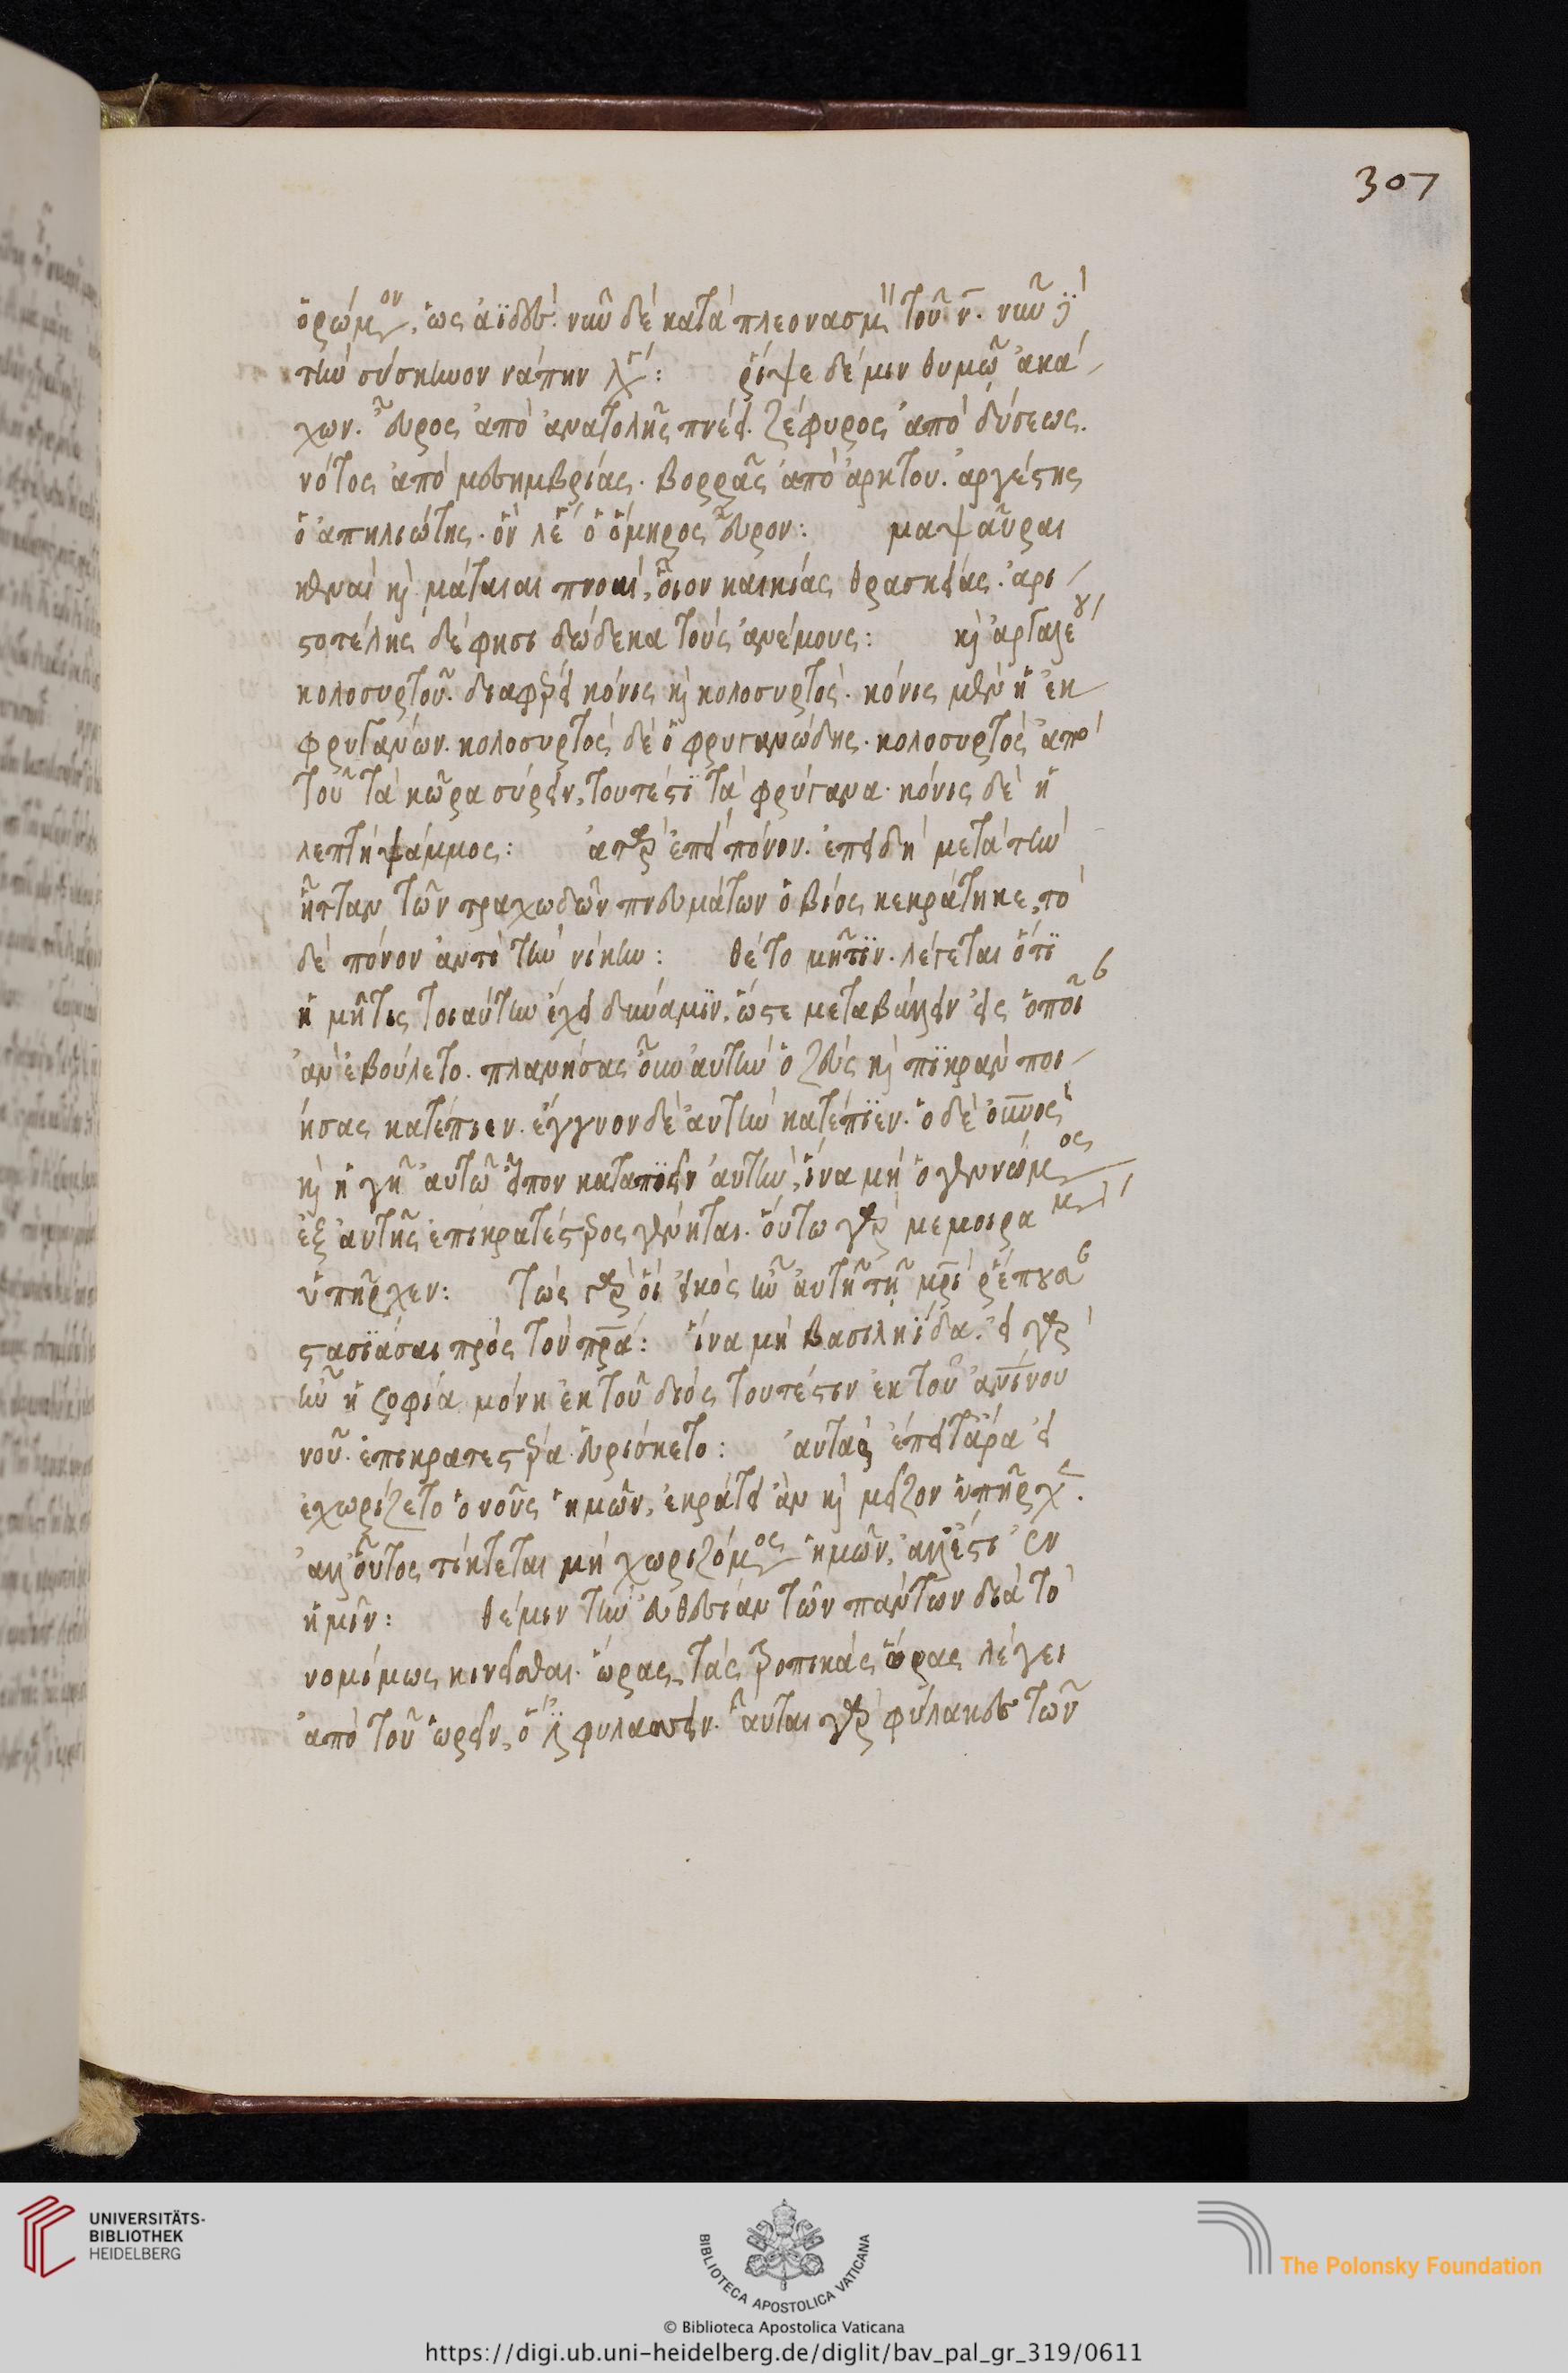 307
ὁρώμενον, ὡς ἀϊδές. νῦν δὲ κατὰ πλεονασμὸν τοῦ ν. νῦν
τὴν σύσκηνον νάπην λέγει: ῥίψε δέ μιν θυμῷ ἀκα-
χών. εὖρος ἀπὸ ἀνατολῆς πνέει. ζέφυρος ἀπὸ δύσεως.
νότος ἀπὸ μεσημβρίας. βορρᾶς ἀπὸ ἄρκτου. ἀργέστης
ὁ ἀπηλιώτης. ὃν λέγει ὁ ὅμηρος εὖρον: μαψαῦραι
κεναὶ καὶ μάταιαι πνοαί, οἷον καικίας θρασκείας. ἀρι-
στοτέλης δέ φησι δώδεκα τοὺς ἀνέμους: καὶ ἀργαλέου
κολοσυρτοῦ. διαφέρει κόνις καὶ κολοσυρτός. κόνις μὲν ἡ ἐκ
φρυγάνων. κολοσυρτὸς δὲ ὁ φρυγανώδης. κολοσυρτὸς ἀπὸ
τοῦ τὰ κῶρα σύρειν, τουτέστι τὰ φρύγανα. κόνις δὲ ἡ
λεπτὴ ψάμμος: αὐτὰρ ἐπεὶ πόνον. ἐπειδὴ μετὰ τὴν
ἧτταν τῶν τραχωδῶν πνευμάτων ὁ βίος κεκράτηκε, τὸ
δὲ πόνον ἀντὶ τὴν νίκην: θέτο μῆτιν. λέγεται ὅτι
ἡ μῆτις τοιαύτην ἔχει δύναμιν, ὥστε μεταβάλλειν εἰς ὁποῖον
ἂν ἐβούλετο. πλανήσας οὖν αὐτὴν ὁ ζεὺς καὶ πικρὰν ποι-
ήσας κατέπιεν. ἔγγυον δὲ αὐτὴν κατέπιεν. ὁ δὲ οὐρανὸς
καὶ ἡ γῆ αὐτῷ εἶπον καταπιεῖν αὐτήν, ἵνα μὴ ὁ γεννώμενος
ἐξ αὐτῆς ἐπικρατέστερος γένηται. οὕτω γὰρ μεμοιραμένον
ὑπῆρχεν: τὼς γὰρ οἱ εἰκὸς ἦν αὐτῇ τῇ μητρὶ ῥέπουσαν
στασιάσαι πρὸς τὸν πατέρα: ἵνα μὴ βασιληΐδα. εἰ γὰρ
ἦν ἡ σοφία μόνη ἐκ τοῦ διός, τουτέστιν ἐκ τοῦ ἀνθρωπίνου
νοῦ. ἐπικρατεστέρα εὑρίσκετο: αὐτὰρ ἔπειτ' ἄρα εἰ
ἐχωρίζετο ὁ νοῦς ἡμῶν, ἐκράτει ἂν καὶ μεῖζον ὑπῆρχεν.
ἀλλ' οὗτος τίκτεται μὴ χωριζόμενος ἡμῶν, ἀλλ' ἔστι ἐν
ἡμῖν: θέμιν τὴν εὐθεσίαν τῶν πάντων διὰ τὸ
νομίμως κινεῖσθαι. ὥρας, τὰς τροπικὰς ὥρας λέγει
ἀπὸ τοῦ ὠρεῖν, ὅ ἐστι φυλάσσειν. αὗται γὰρ φύλακες τῶν
UNIVERSITÄTS-
BIBLIOTHEK
HEIDELBERG
BIBLIOTECA APOSTOLICA VATICANA
The Polonsky Foundation
© Biblioteca Apostolica Vaticana
https://digi.ub.uni-heidelberg.de/diglit/bav_pal_gr_319/0611